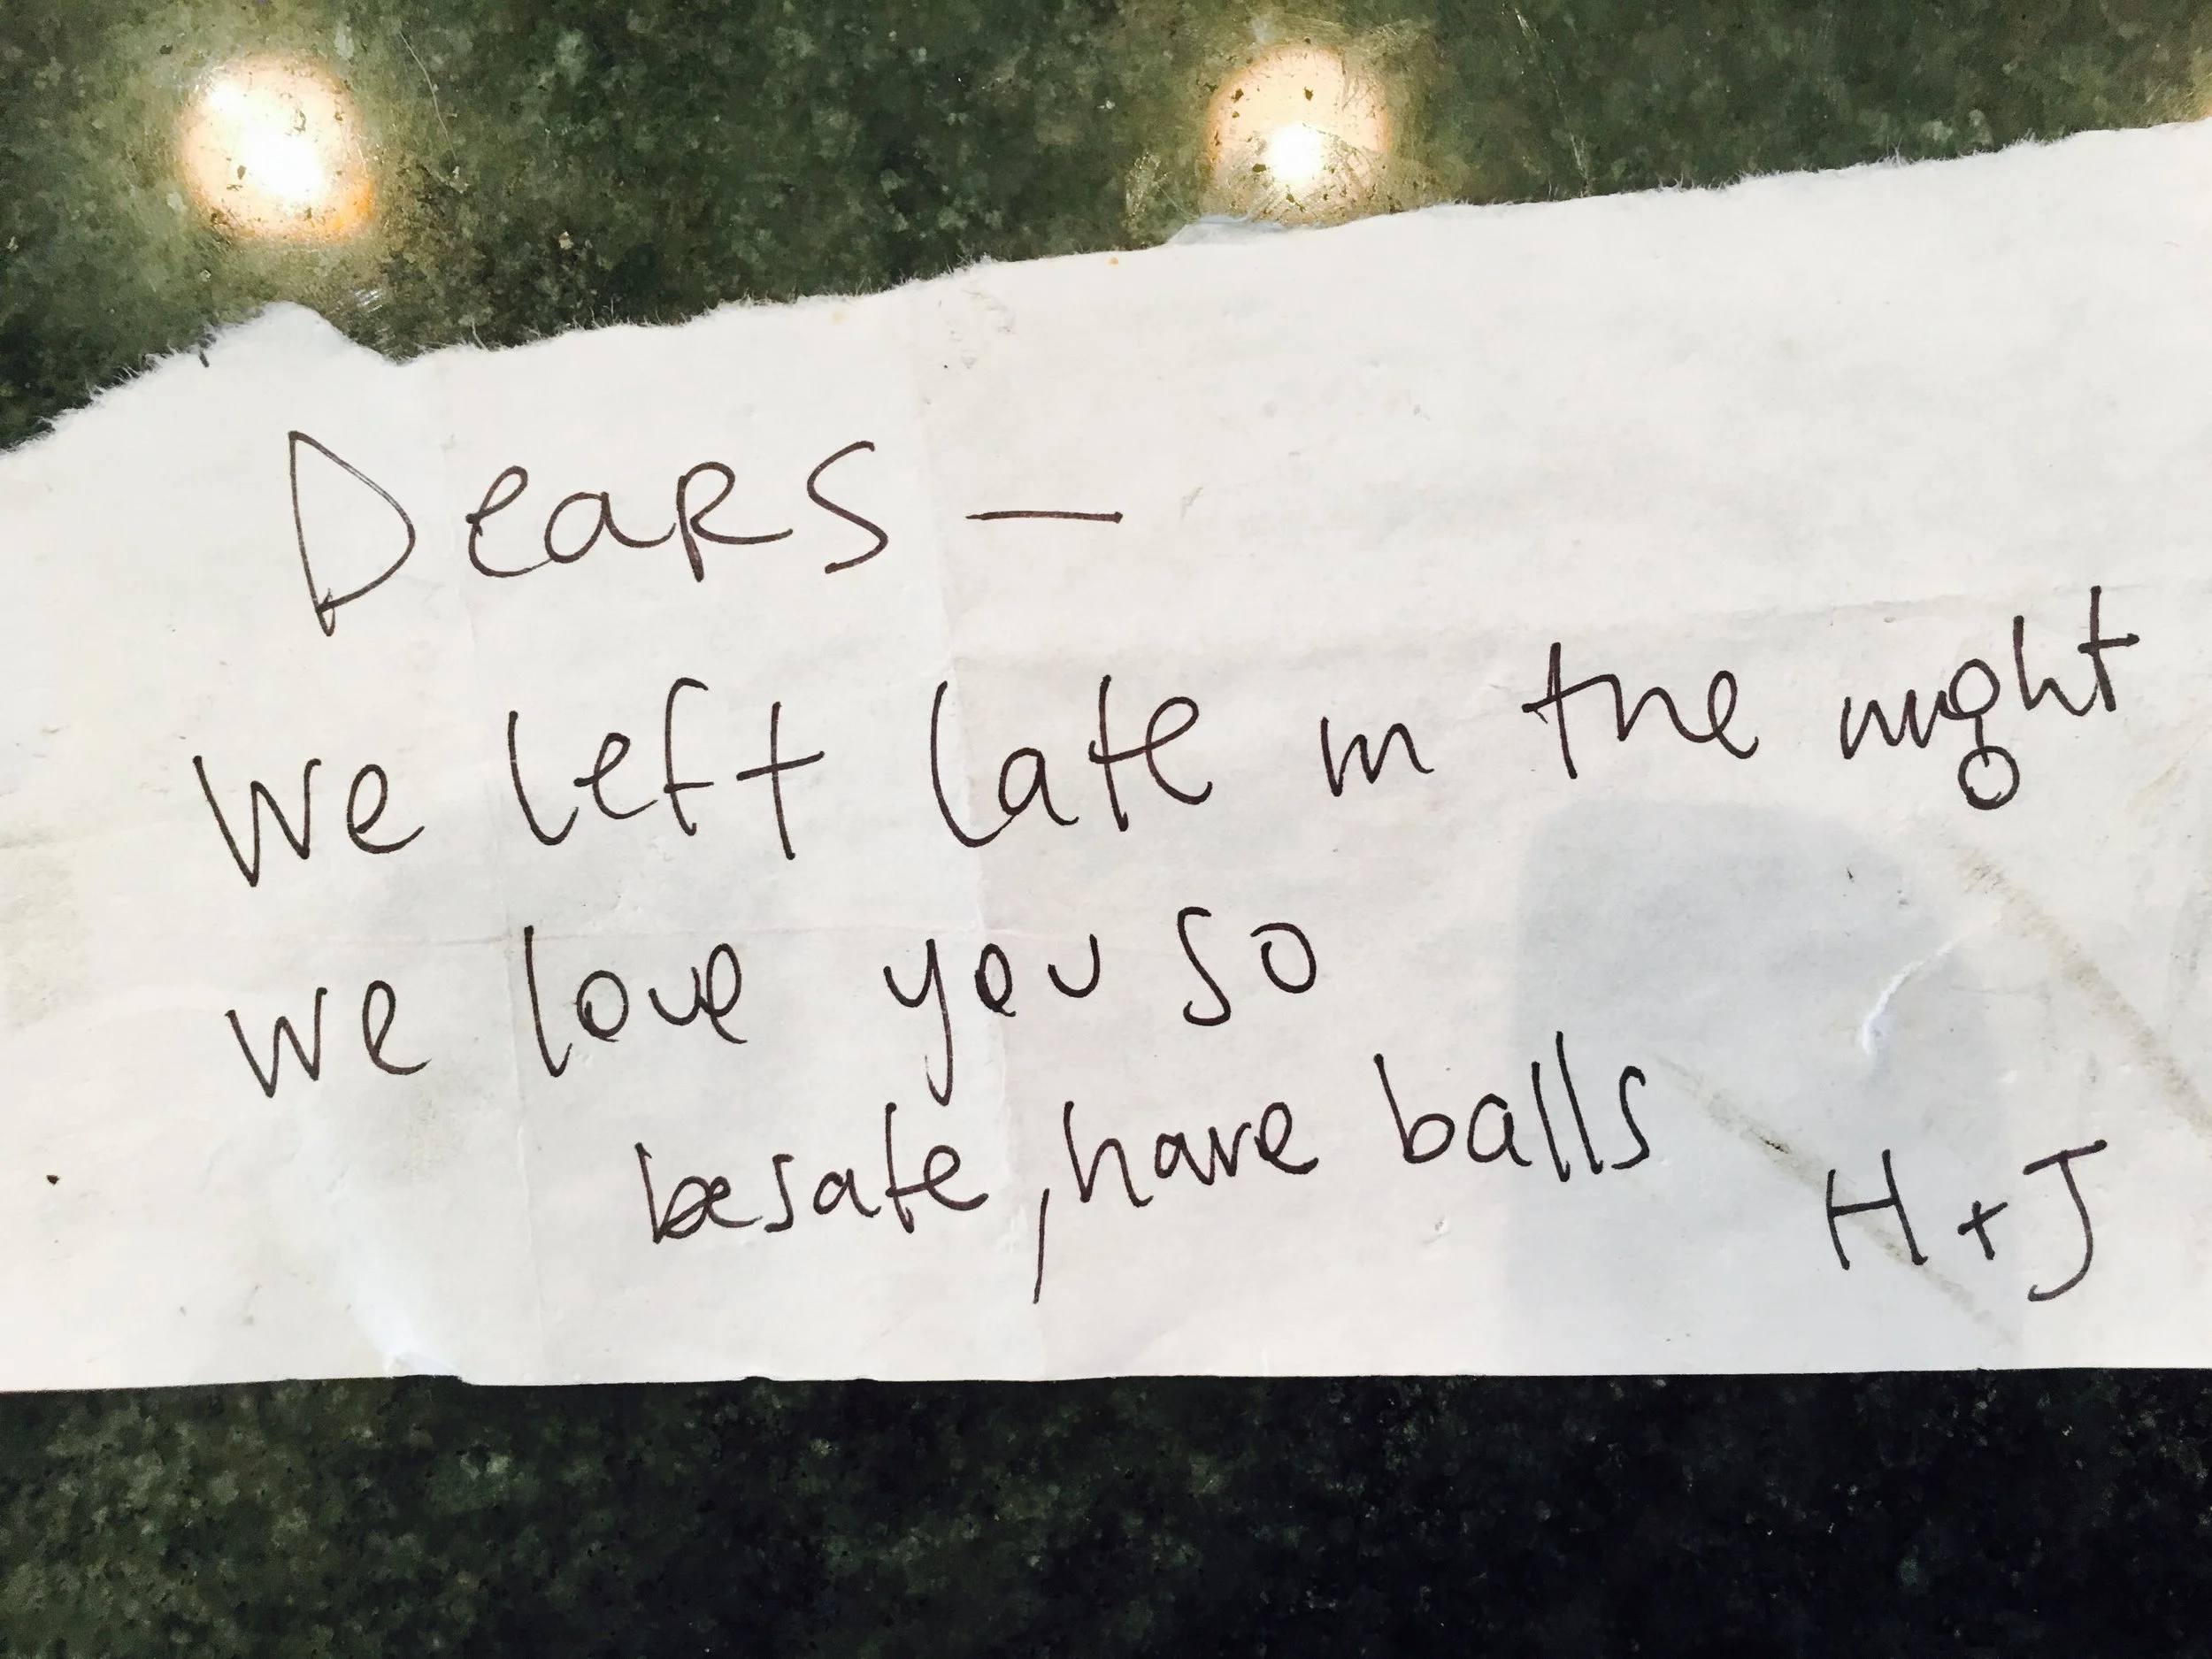 Dears —
We left late in the night
we love you so
be safe, have balls
H + J